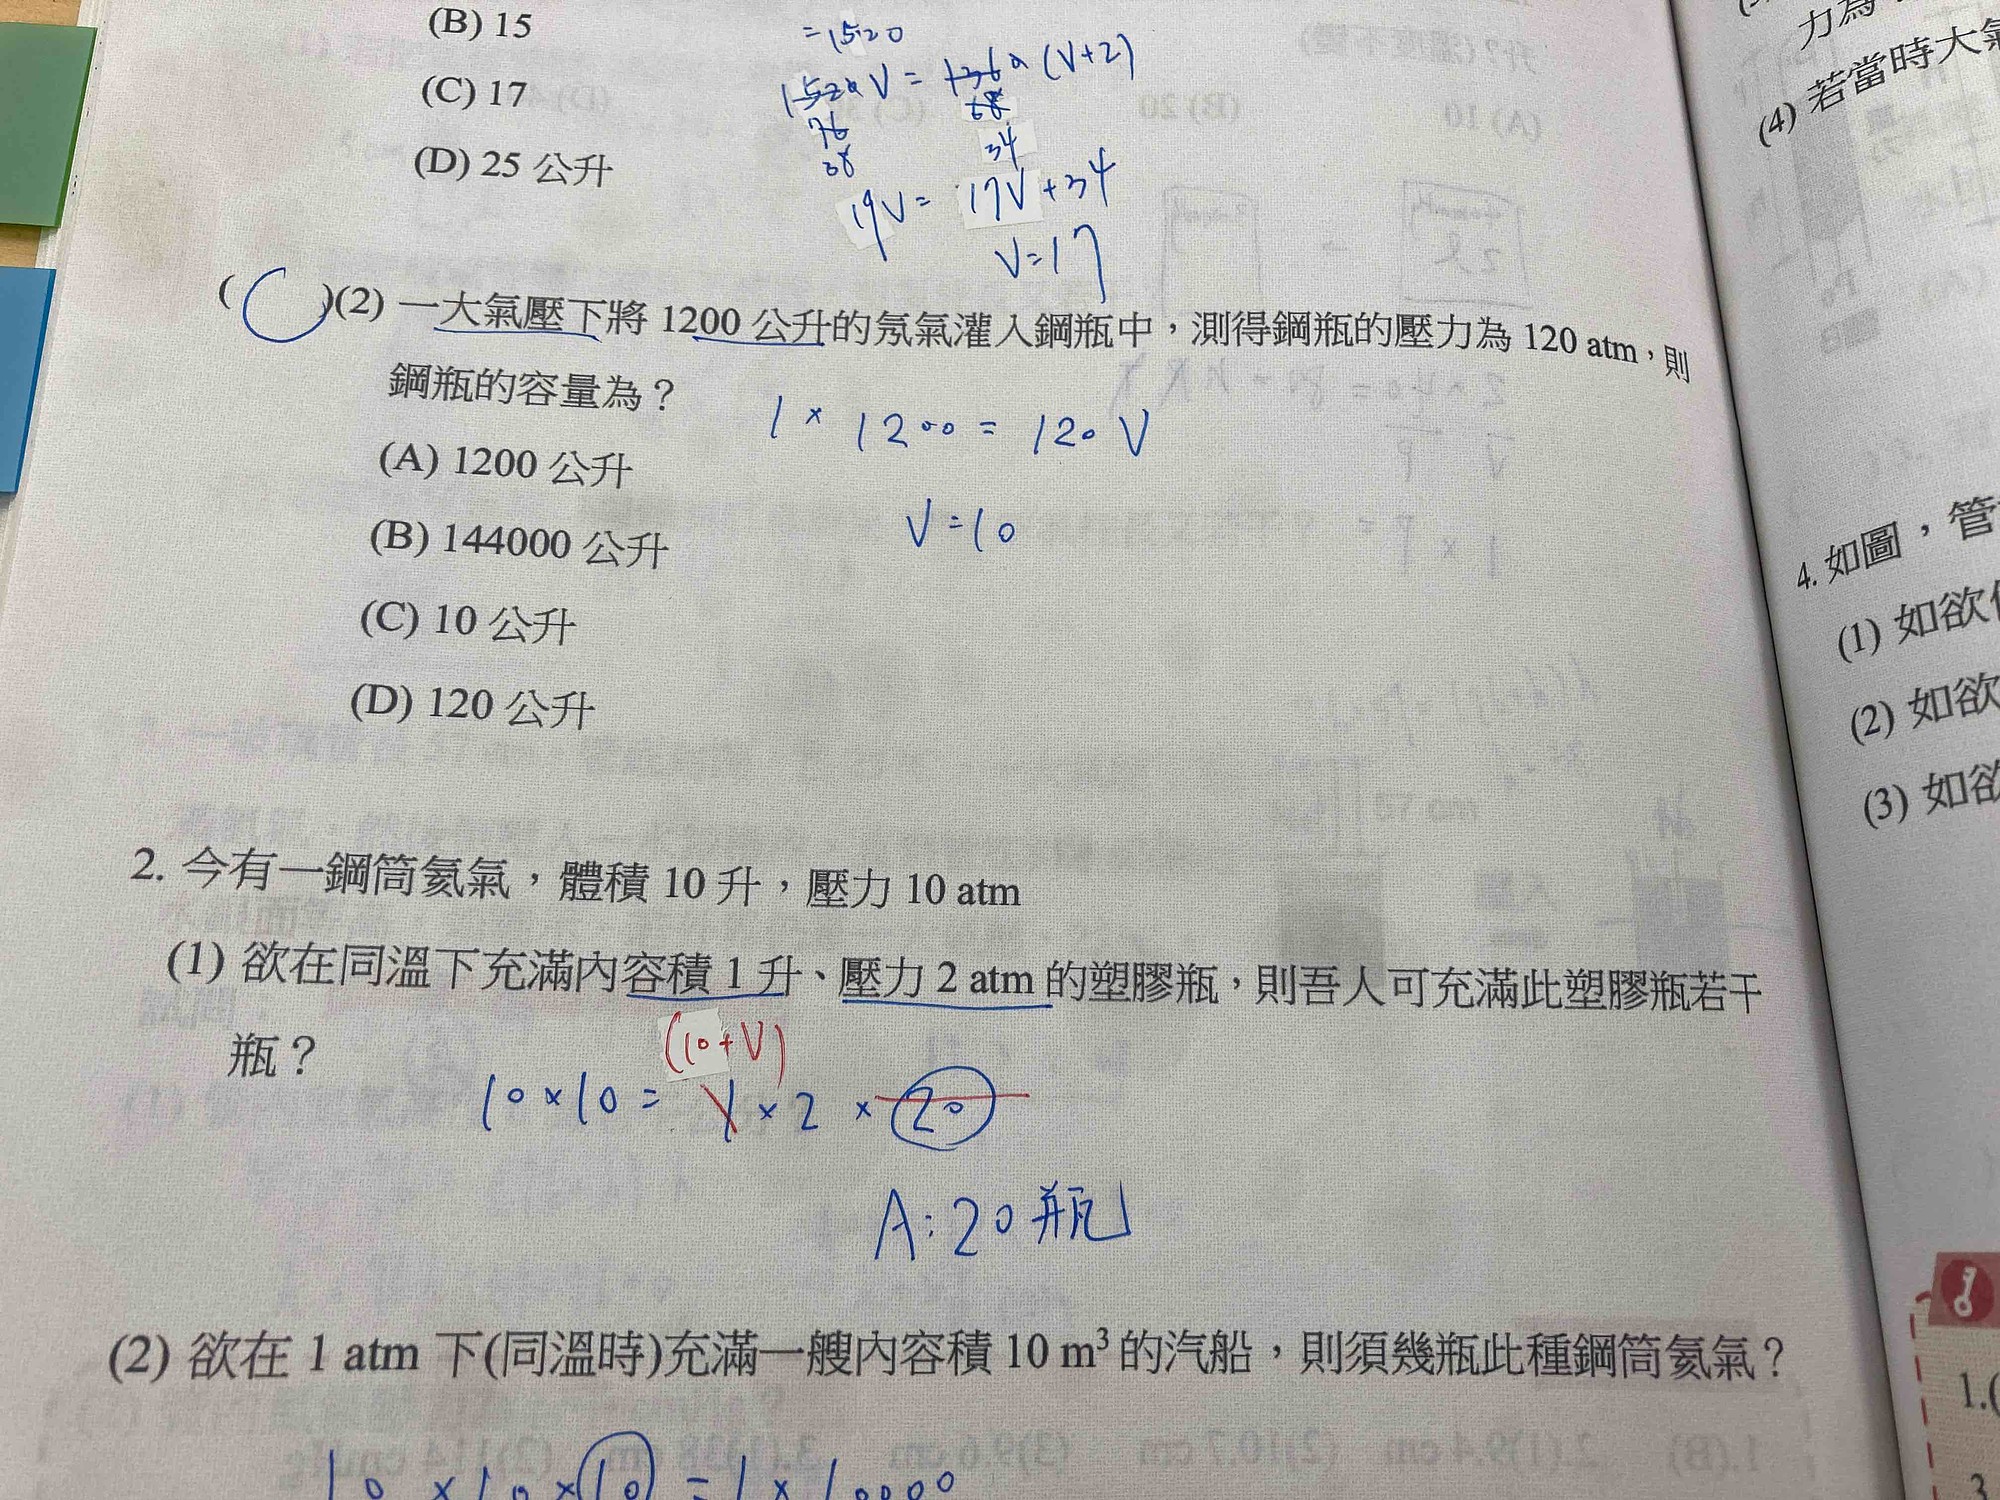 (B) 15
(C) 17
(D) 25 公升
=1520
V = (V+2)
76
38
68
34
19V = 17V+34
V=17
( C )(2) 一大氣壓下將 1200 公升的氖氣灌入鋼瓶中，測得鋼瓶的壓力為 120 atm，則
鋼瓶的容量為？
1 × 1200 = 120 V
V=10
(A) 1200 公升
(B) 144000 公升
(C) 10 公升
(D) 120 公升
2. 今有一鋼筒氦氣，體積 10 升，壓力 10 atm
(1) 欲在同溫下充滿內容積 1 升、壓力 2 atm 的塑膠瓶，則吾人可充滿此塑膠瓶若干
瓶？
(10+V)
10×10 = 1×2 × 20
A: 20 瓶
(2) 欲在 1 atm 下(同溫時)充滿一艘內容積 10 m³ 的汽船，則須幾瓶此種鋼筒氦氣？
10 × 10 × 10 = 1 × 10000
力為
(4) 若當時大氣
4. 如圖，管
(1) 如欲
(2) 如欲
(3) 如欲
1.(
3